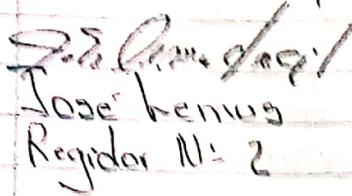 José Lemus
Regidor N: 2